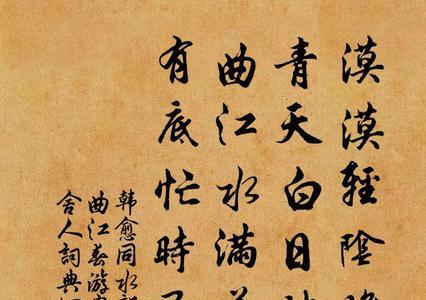 漠漠輕陰
青天白日
曲江水滿
有底忙時
韓愈同水
曲江春游
舍人詞典